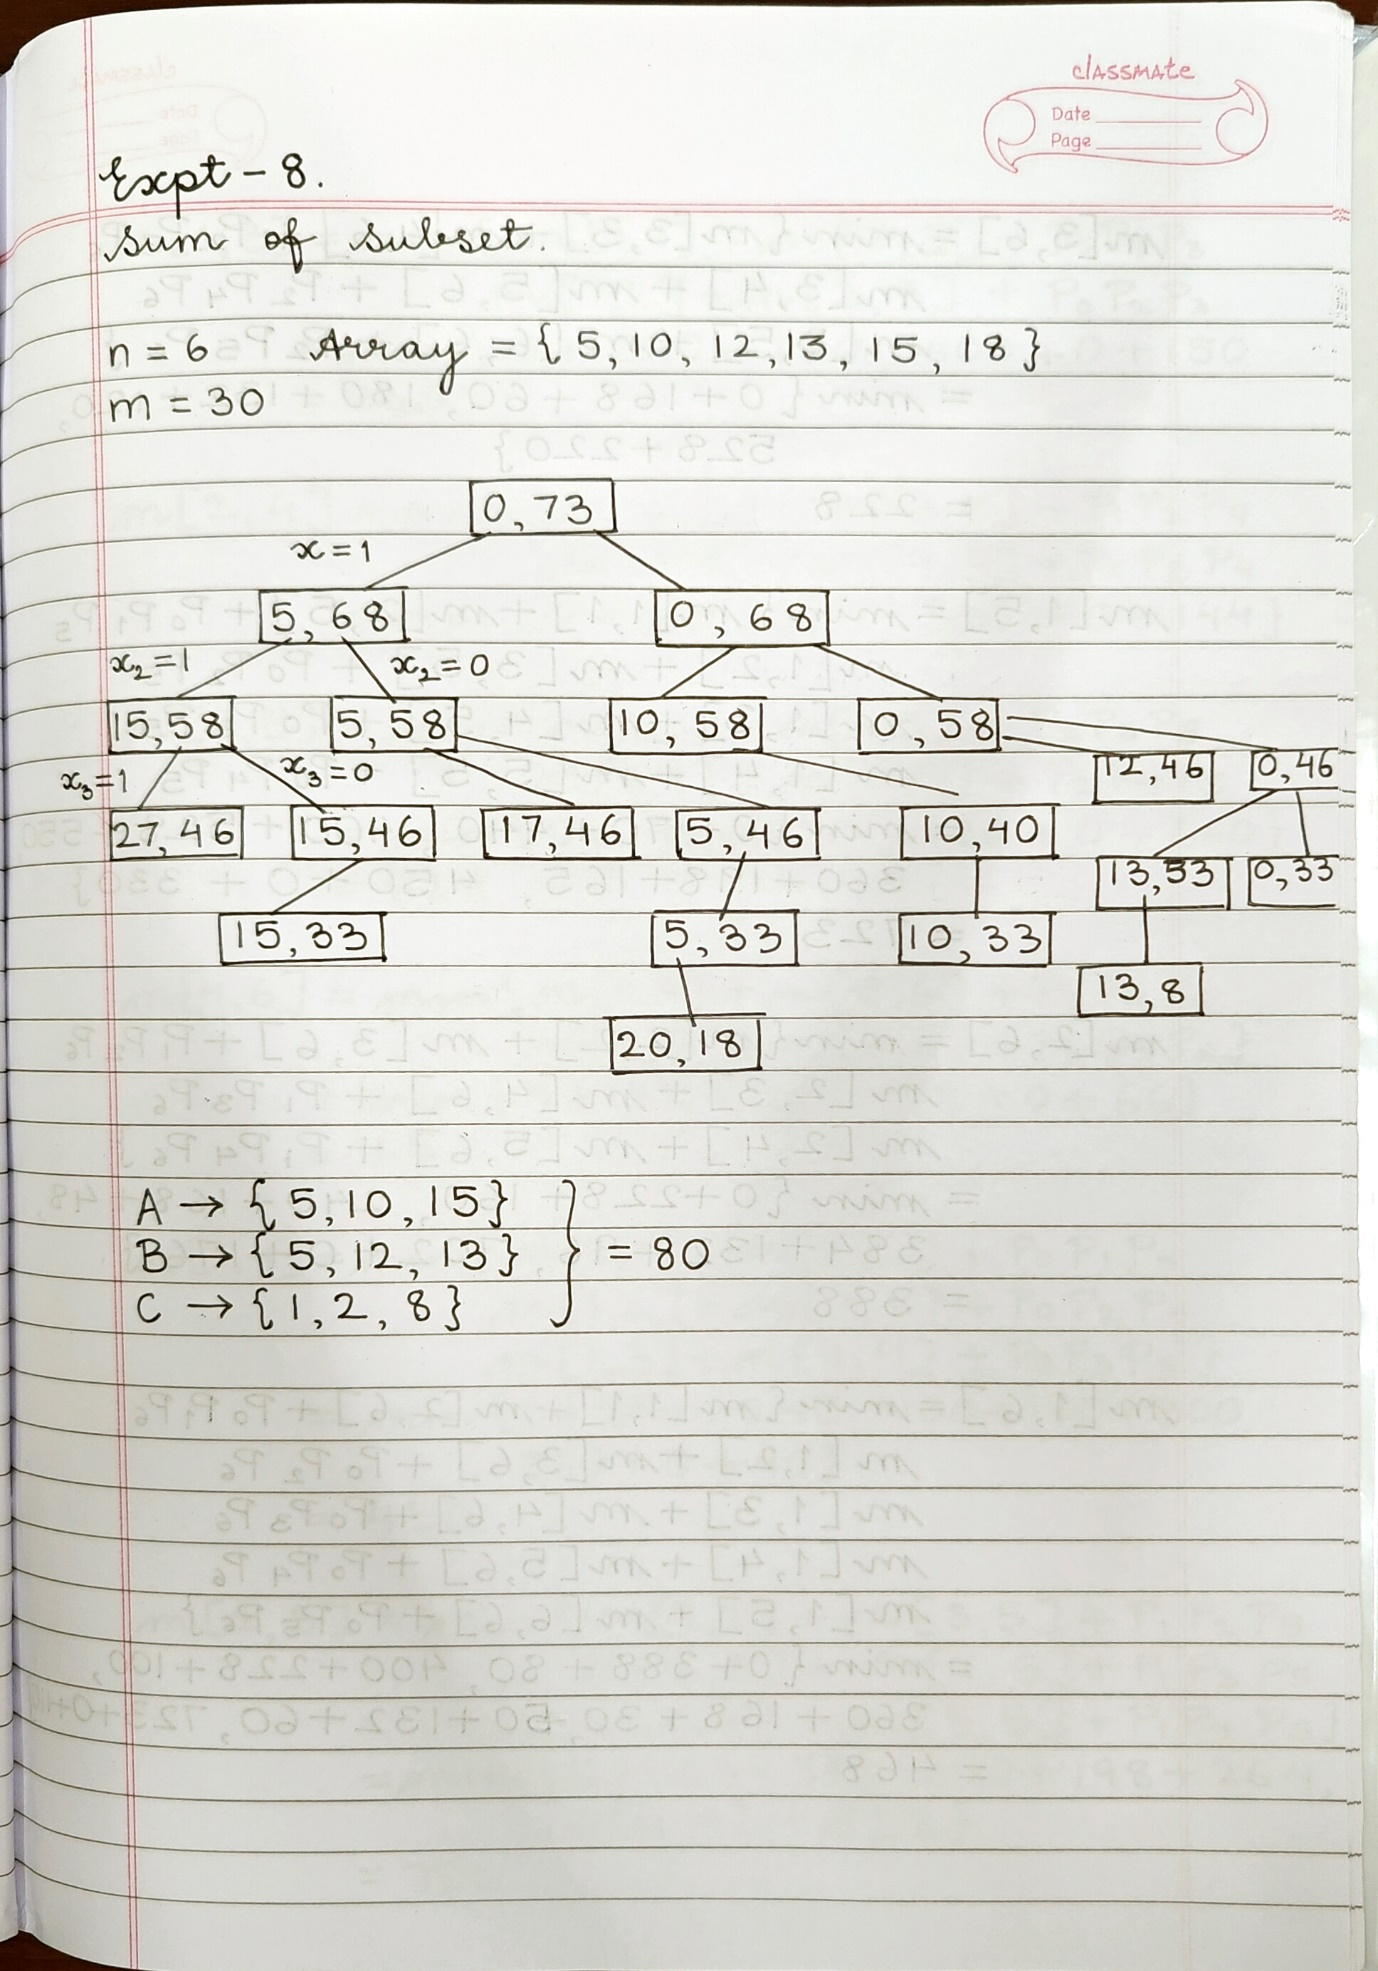 classmate
Date
Page
Expt - 8.
sum of subset.
n = 6 Array = { 5, 10, 12, 13, 15, 18 }
m = 30
0, 73
x = 1
5, 68 0, 68
x₂ = 1 x₂ = 0
15, 58 5, 58 10, 58 0, 58
x₃ = 1 x₃ = 0 12, 46 0, 46
27, 46 15, 46 17, 46 5, 46 10, 40
13, 33 0, 33
15, 33 5, 33 10, 33
13, 8
20, 18
A → { 5, 10, 15 }
B → { 5, 12, 13 } } = 80
C → { 1, 2, 8 }